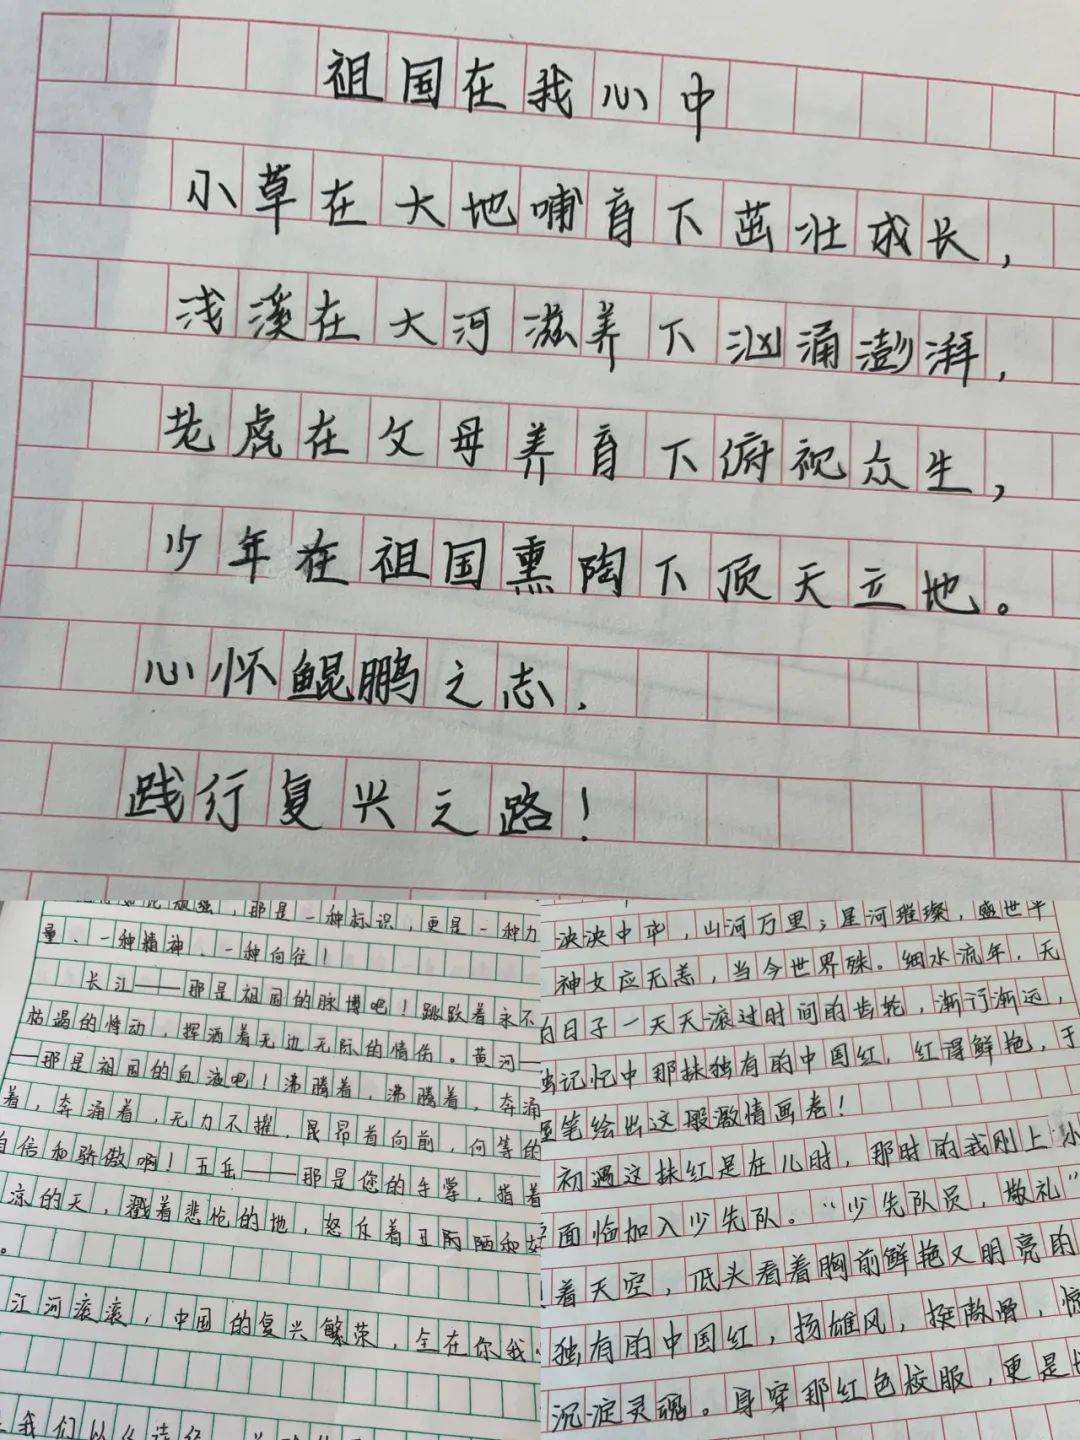 祖国在我心中
小草在大地哺育下茁壮成长，
浅溪在大河滋养下汹涌澎湃，
老虎在父母养育下俯视众生，
少年在祖国熏陶下顶天立地。
心怀鲲鹏之志，
践行复兴之路！
，那是一种标识，更是一种力
量、一种精神、一种向往！
长江——那是祖国的脉搏吧！跳跃着永不
枯竭的悸动，挥洒着无边无际的情伤。黄河—
—那是祖国的血液吧！沸腾着，沸腾着，奔涌
着，奔涌着，无力不摧，昆昂着向前，何等的
自信和骄傲啊！五岳——那是您的手掌，指着
凉的天，戳着悲怆的地，怒斥着丑陋和
。
江河滚滚，中国的复兴繁荣，全在你我
我们以
泱泱中华，山河万里；星河璀璨，盛世平
神女应无恙，当今世界殊。细水流年，无
白日子一天天滚过时间的齿轮，渐行渐远，
记忆中那抹独有的中国红，红得鲜艳，于
笔绘出这般激情画卷！
初遇这抹红是在儿时，那时的我刚上小
面临加入少先队。“少先队员，敬礼”
着天空，低头看着胸前鲜艳又明亮的
独有的中国红，扬雄风，挺傲骨，惊
沉淀灵魂。身穿那红色校服，更是